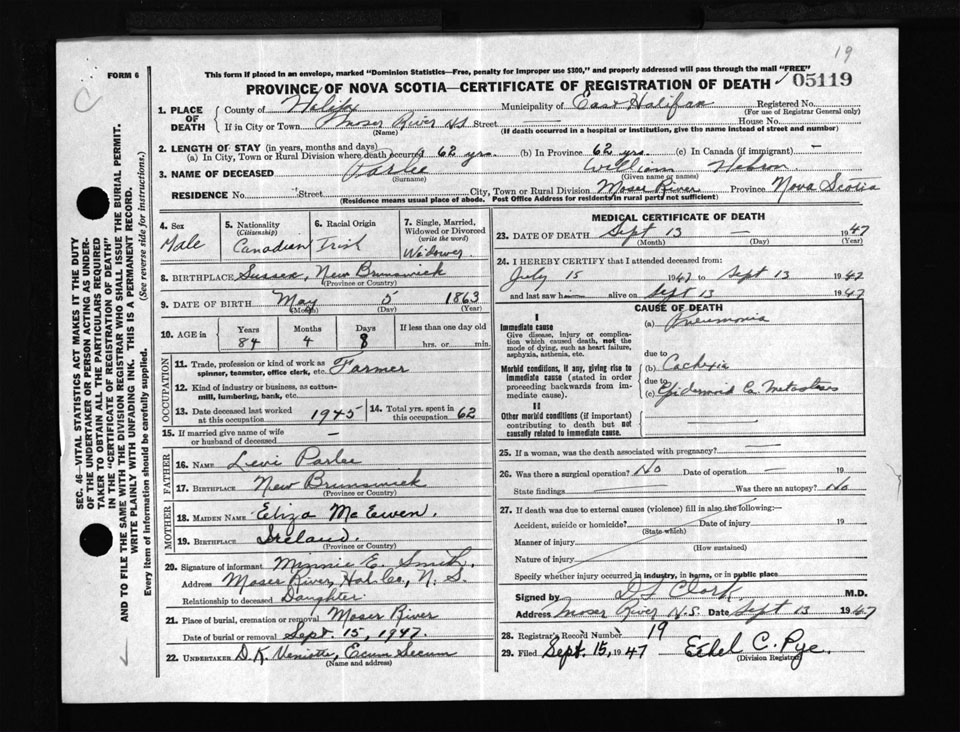 19
FORM 6
This form if placed in an envelope, marked "Dominion Statistics—Free, penalty for improper use $300," and properly addressed will pass through the mail "FREE"
C
PROVINCE OF NOVA SCOTIA—CERTIFICATE OF REGISTRATION OF DEATH 05119
1. PLACE OF DEATH
County of Halifax Municipality of East Halifax Registered No.
(For use of Registrar General only)
If in City or Town Moser River N.S. Street House No.
(Name) (If death occurred in a hospital or institution, give the name instead of street and number)
2. LENGTH OF STAY (in years, months and days)
(a) In City, Town or Rural Division where death occurred 62 yrs. (b) In Province 62 yrs. (c) In Canada (if immigrant) —
3. NAME OF DECEASED Parlee William Hobson
(Surname) (Given name or names)
RESIDENCE No. Street City, Town or Rural Division Moser River Province Nova Scotia
(Residence means usual place of abode. Post Office Address for residents in rural parts not sufficient)
4. Sex
Male
5. Nationality
(Citizenship)
Canadian
6. Racial Origin
Irish
7. Single, Married, Widowed or Divorced
(write the word)
Widower
8. BIRTHPLACE Sussex, New Brunswick
(Province or Country)
9. DATE OF BIRTH May 5 1863
(Month) (Day) (Year)
10. AGE in
Years Months Days If less than one day old
84 4 8 hrs. or min.
OCCUPATION
11. Trade, profession or kind of work as spinner, teamster, office clerk, etc. Farmer
12. Kind of industry or business, as cotton-mill, lumbering, bank, etc.
13. Date deceased last worked at this occupation 1945
14. Total yrs. spent in this occupation 62
15. If married give name of wife or husband of deceased —
FATHER
16. NAME Levi Parlee
17. BIRTHPLACE New Brunswick
(Province or Country)
MOTHER
18. MAIDEN NAME Eliza McEwen.
19. BIRTHPLACE Ireland.
(Province or Country)
20. Signature of informant Minnie E. Smith.
Address Moser River, Hal. Co., N. S.
Relationship to deceased Daughter.
21. Place of burial, cremation or removal Moser River
Date of burial or removal Sept. 15, 1947.
22. UNDERTAKER D. K. Veniotte, Ecum Secum
(Name and address)
MEDICAL CERTIFICATE OF DEATH
23. DATE OF DEATH Sept 13 — 1947
(Month) (Day) (Year)
24. I HEREBY CERTIFY that I attended deceased from:
July 15 1947 to Sept 13 1947
and last saw him alive on Sept 13 1947
CAUSE OF DEATH
I
Immediate cause
Give disease, injury or complication which caused death, not the mode of dying, such as heart failure, asphyxia, asthenia, etc.
(a) Pneumonia
due to
Morbid conditions, if any, giving rise to immediate cause (stated in order proceeding backwards from immediate cause).
(b) Cachexia
due to
(c) Epidermoid Ca. Metastases
II
Other morbid conditions (if important) contributing to death but not causally related to immediate cause.
25. If a woman, was the death associated with pregnancy? —
26. Was there a surgical operation? No Date of operation — 19
State findings Was there an autopsy? No
27. If death was due to external causes (violence) fill in also the following:—
Accident, suicide or homicide? Date of injury 19
(State which)
Manner of injury
(How sustained)
Nature of injury
Specify whether injury occurred in industry, in home, or in public place
Signed by D L Clark M.D.
Address Moser River N.S. Date Sept 13 1947
28. Registrar's Record Number 19
29. Filed Sept. 15, 1947 Ethel C. Pye.
(Division Registrar)
SEC. 46—VITAL STATISTICS ACT MAKES IT THE DUTY
OF THE UNDERTAKER OR PERSON ACTING AS UNDER-
TAKER TO OBTAIN ALL THE PARTICULARS REQUIRED
IN THE "CERTIFICATE OF REGISTRATION OF DEATH"
AND TO FILE THE SAME WITH THE DIVISION REGISTRAR WHO SHALL ISSUE THE BURIAL PERMIT.
WRITE PLAINLY WITH UNFADING INK. THIS IS A PERMANENT RECORD.
Every item of information should be carefully supplied. (See reverse side for instructions.)